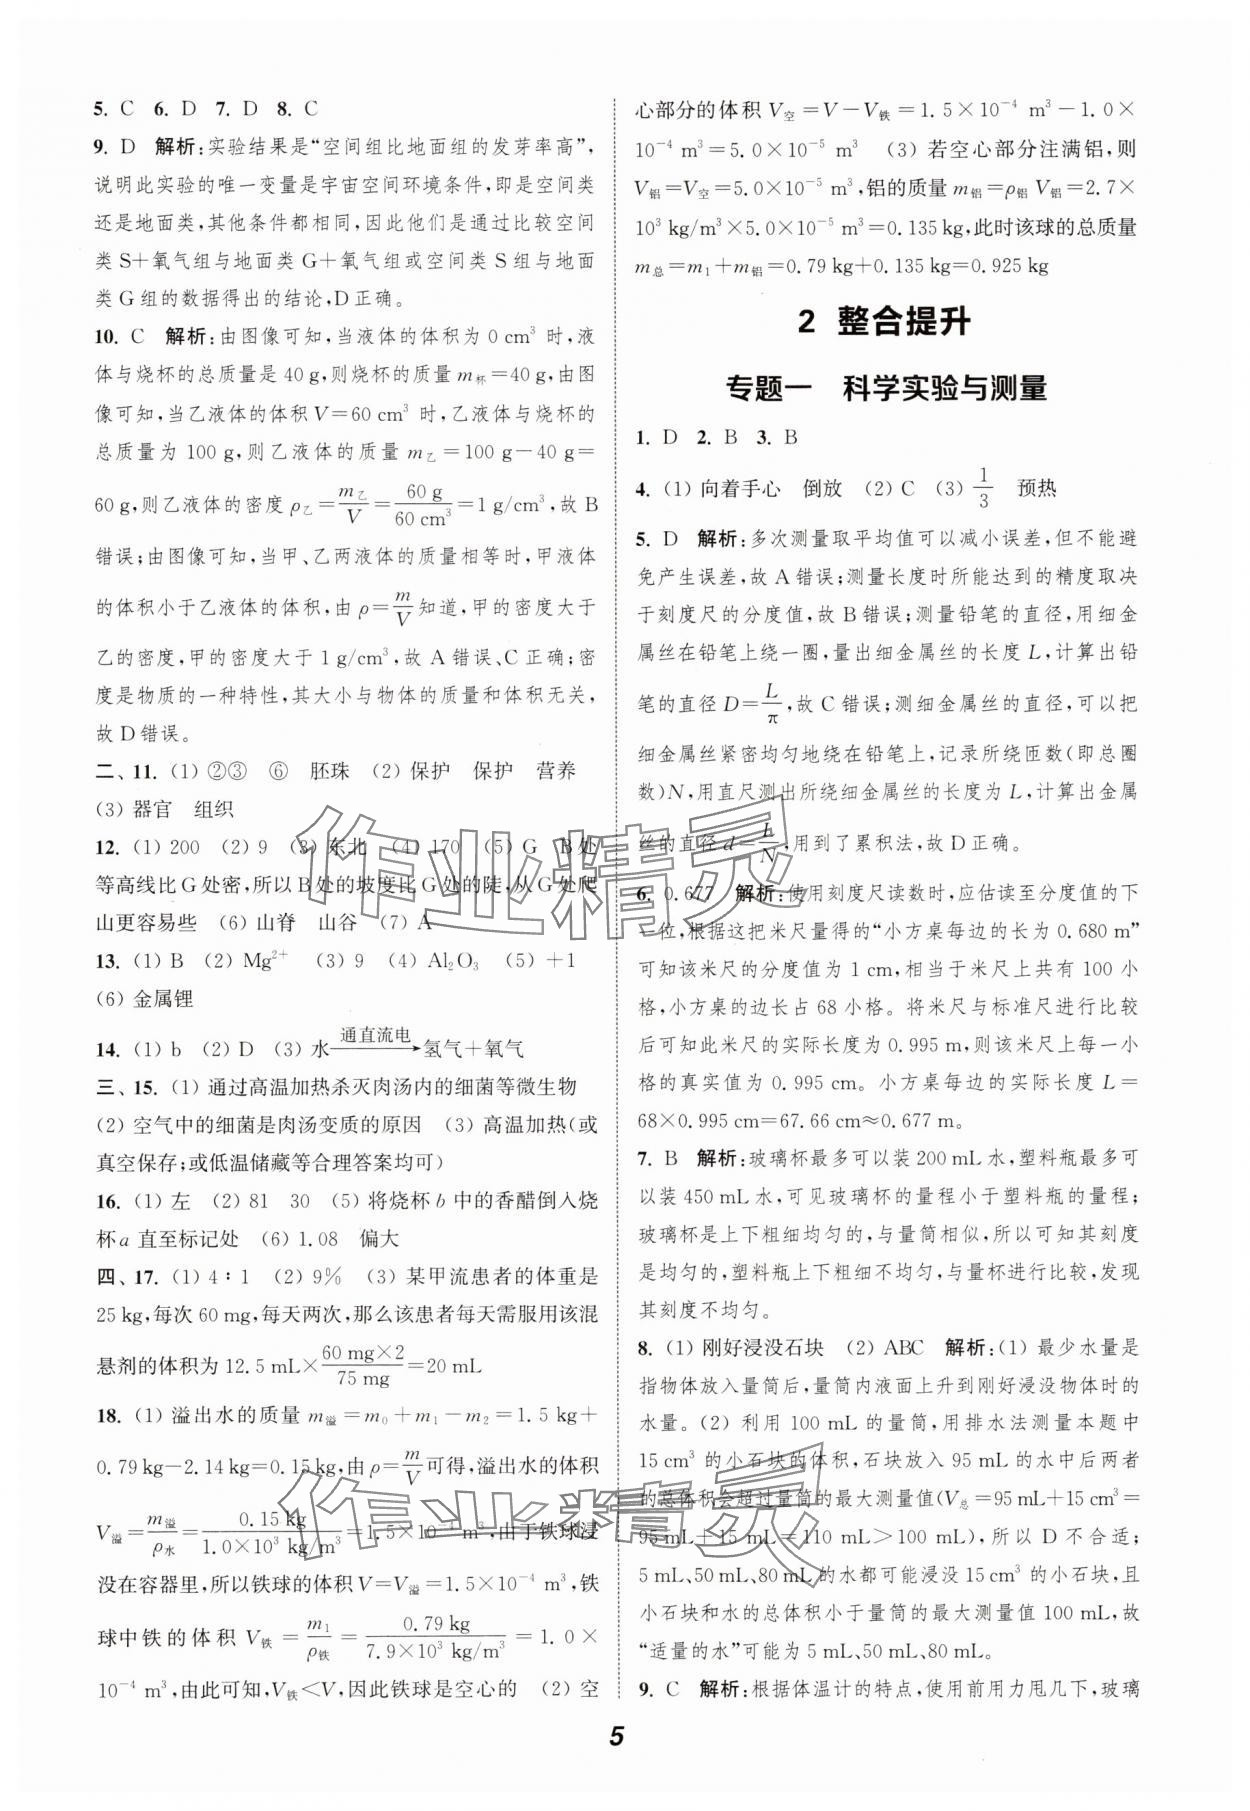 5. C 6. D 7. D 8. C
9. D 解析:实验结果是“空间组比地面组的发芽率高”,
说明此实验的唯一变量是宇宙空间环境条件,即是空间类
还是地面类,其他条件都相同,因此他们是通过比较空间
类 S+氧气组与地面类 G+氧气组或空间类 S 组与地面
类 G 组的数据得出的结论,D 正确。
10. C 解析:由图像可知,当液体的体积为 0 cm³ 时,液
体与烧杯的总质量是 40 g,则烧杯的质量 m杯=40 g,由图
像可知,当乙液体的体积 V=60 cm³ 时,乙液体与烧杯的
总质量为 100 g,则乙液体的质量 m乙=100 g-40 g=
60 g,则乙液体的密度 ρ乙=m乙/V=60 g/60 cm³=1 g/cm³,故 B
错误;由图像可知,当甲、乙两液体的质量相等时,甲液体
的体积小于乙液体的体积,由 ρ=m/V知道,甲的密度大于
乙的密度,甲的密度大于 1 g/cm³,故 A 错误、C 正确;密
度是物质的一种特性,其大小与物体的质量和体积无关,
故 D 错误。
二、11. (1) ②③ ⑥ 胚珠 (2) 保护 保护 营养
(3) 器官 组织
12. (1) 200 (2) 9 (3) 东北 (4) 170 (5) G B 处
等高线比 G 处密,所以 B 处的坡度比 G 处的陡,从 G 处爬
山更容易些 (6) 山脊 山谷 (7) A
13. (1) B (2) Mg²⁺ (3) 9 (4) Al₂O₃ (5) +1
(6) 金属锂
14. (1) b (2) D (3) 水 通直流电→ 氢气+氧气
三、15. (1) 通过高温加热杀灭肉汤内的细菌等微生物
(2) 空气中的细菌是肉汤变质的原因 (3) 高温加热(或
真空保存;或低温储藏等合理答案均可)
16. (1) 左 (2) 81 30 (5) 将烧杯 b 中的香醋倒入烧
杯 a 直至标记处 (6) 1.08 偏大
四、17. (1) 4∶1 (2) 9% (3) 某甲流患者的体重是
25 kg,每次 60 mg,每天两次,那么该患者每天需服用该混
悬剂的体积为 12.5 mL×60 mg×2/75 mg=20 mL
18. (1) 溢出水的质量 m溢=m₀+m₁-m₂=1.5 kg+
0.79 kg-2.14 kg=0.15 kg,由 ρ=m/V可得,溢出水的体积
V溢=m溢/ρ水=0.15 kg/1.0×10³ kg/m³=1.5×10⁻⁴ m³,由于铁球浸
没在容器里,所以铁球的体积 V=V溢=1.5×10⁻⁴ m³,铁
球中铁的体积 V铁=m₁/ρ铁=0.79 kg/7.9×10³ kg/m³=1.0×
10⁻⁴ m³,由此可知,V铁<V,因此铁球是空心的 (2) 空
心部分的体积 V空=V-V铁=1.5×10⁻⁴ m³-1.0×
10⁻⁴ m³=5.0×10⁻⁵ m³ (3) 若空心部分注满铝,则
V铝=V空=5.0×10⁻⁵ m³,铝的质量 m铝=ρ铝 V铝=2.7×
10³ kg/m³×5.0×10⁻⁵ m³=0.135 kg,此时该球的总质量
m总=m₁+m铝=0.79 kg+0.135 kg=0.925 kg
2 整合提升
专题一 科学实验与测量
1. D 2. B 3. B
4. (1) 向着手心 倒放 (2) C (3) 1/3 预热
5. D 解析:多次测量取平均值可以减小误差,但不能避
免产生误差,故 A 错误;测量长度时所能达到的精度取决
于刻度尺的分度值,故 B 错误;测量铅笔的直径,用细金
属丝在铅笔上绕一圈,量出细金属丝的长度 L,计算出铅
笔的直径 D=L/π,故 C 错误;测细金属丝的直径,可以把
细金属丝紧密均匀地绕在铅笔上,记录所绕匝数(即总圈
数)N,用直尺测出所绕细金属丝的长度为 L,计算出金属
丝的直径 d=L/N,用到了累积法,故 D 正确。
6. 0.677 解析:使用刻度尺读数时,应估读至分度值的下
一位,根据这把米尺量得的“小方桌每边的长为 0.680 m”
可知该米尺的分度值为 1 cm,相当于米尺上共有 100 小
格,小方桌的边长占 68 小格。将米尺与标准尺进行比较
后可知此米尺的实际长度为 0.995 m,则该米尺上每一小
格的真实值为 0.995 cm。小方桌每边的实际长度 L=
68×0.995 cm=67.66 cm≈0.677 m。
7. B 解析:玻璃杯最多可以装 200 mL 水,塑料瓶最多可
以装 450 mL 水,可见玻璃杯的量程小于塑料瓶的量程;
玻璃杯是上下粗细均匀的,与量筒相似,所以可知其刻度
是均匀的,塑料瓶上下粗细不均匀,与量杯进行比较,发现
其刻度不均匀。
8. (1) 刚好浸没石块 (2) ABC 解析:(1) 最少水量是
指物体放入量筒后,量筒内液面上升到刚好浸没物体时的
水量。(2) 利用 100 mL 的量筒,用排水法测量本题中
15 cm³ 的小石块的体积,石块放入 95 mL 的水中后两者
的总体积会超过量筒的最大测量值(V总=95 mL+15 cm³=
95 mL+15 mL=110 mL>100 mL),所以 D 不合适;
5 mL、50 mL、80 mL 的水都可能浸没 15 cm³ 的小石块,且
小石块和水的总体积小于量筒的最大测量值 100 mL,故
“适量的水”可能为 5 mL、50 mL、80 mL。
9. C 解析:根据体温计的特点,使用前用力甩几下,玻璃
5
作业精灵
作业精灵